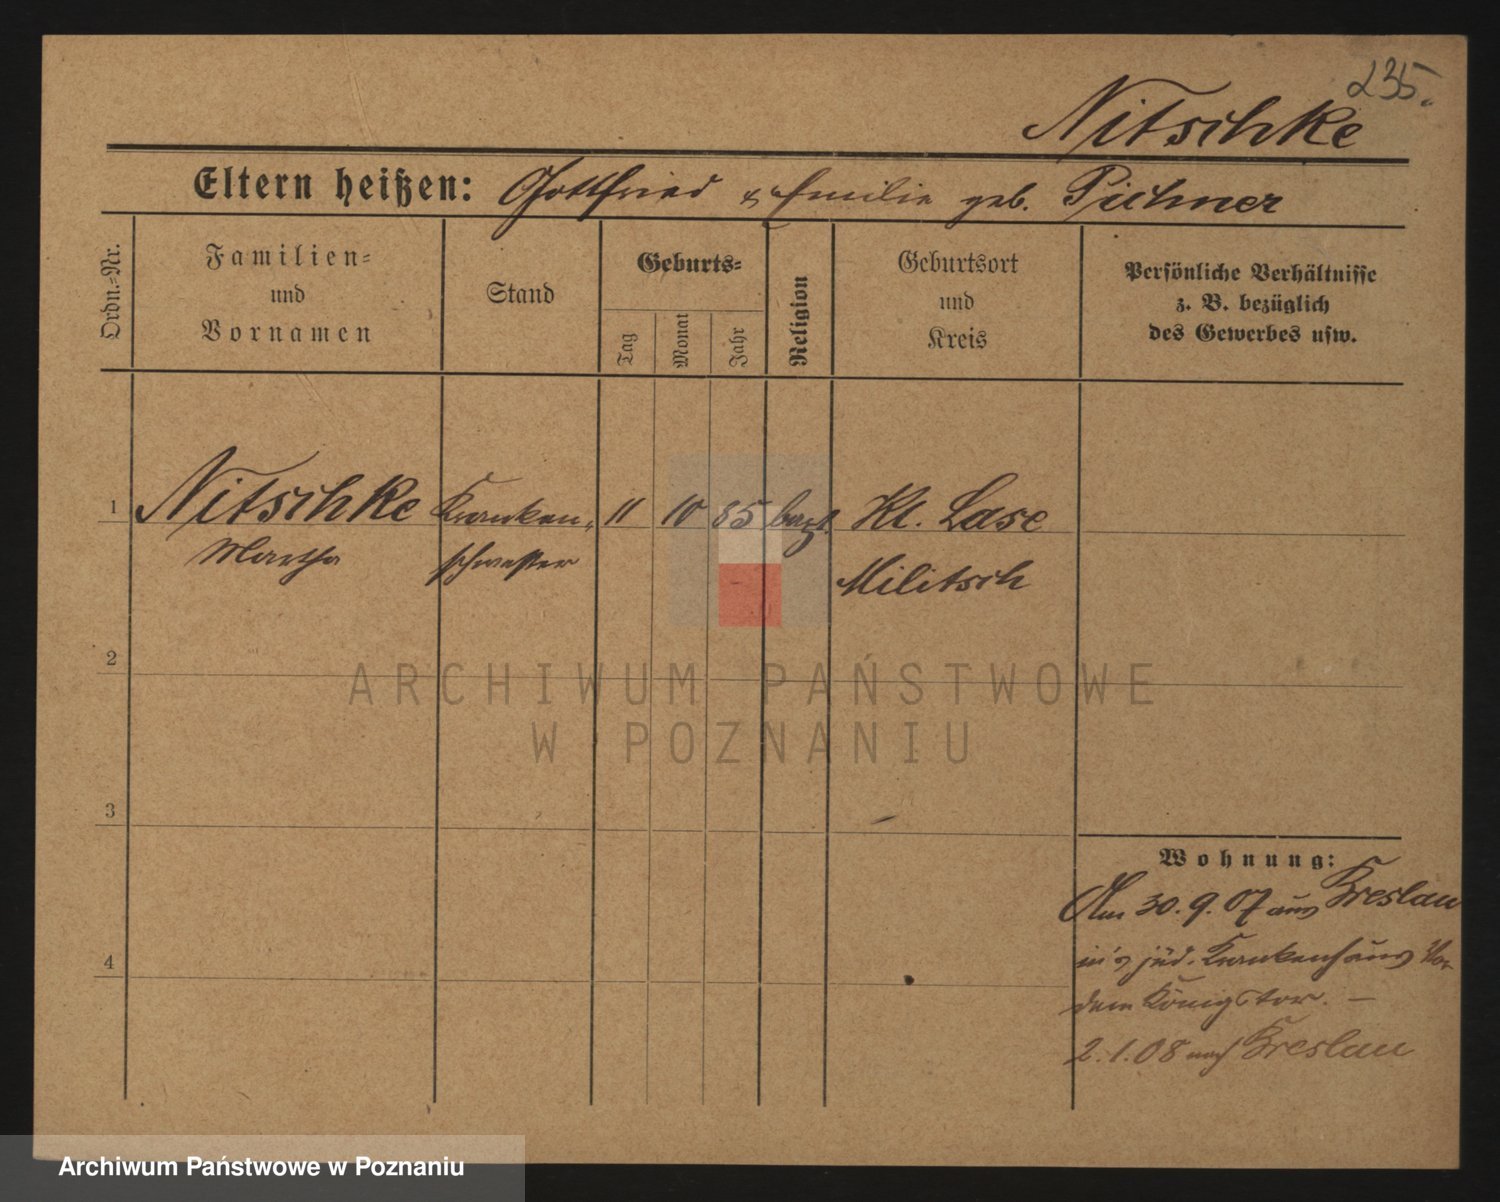 235.
Nitschke
Eltern heißen: Gottfried & Emilie geb. Pichner
Ordn.-Nr.
Familien-
und
Vornamen
Stand
Geburts-
Tag
Monat
Jahr
Religion
Geburtsort
und
Kreis
Persönliche Verhältnisse
z. B. bezüglich
des Gewerbes usw.
1 Nitschke Kranken- 11 10 85 Kl. Lase
Martha schwester Militsch
2
ARCHIWUM PAŃSTWOWE
W POZNANIU
3
Wohnung:
Am 30.9.07 aus Breslau
in's jüd. Krankenhaus Vor
4
dem Königstor. —
2.1.08 nach Breslau
Archiwum Państwowe w Poznaniu